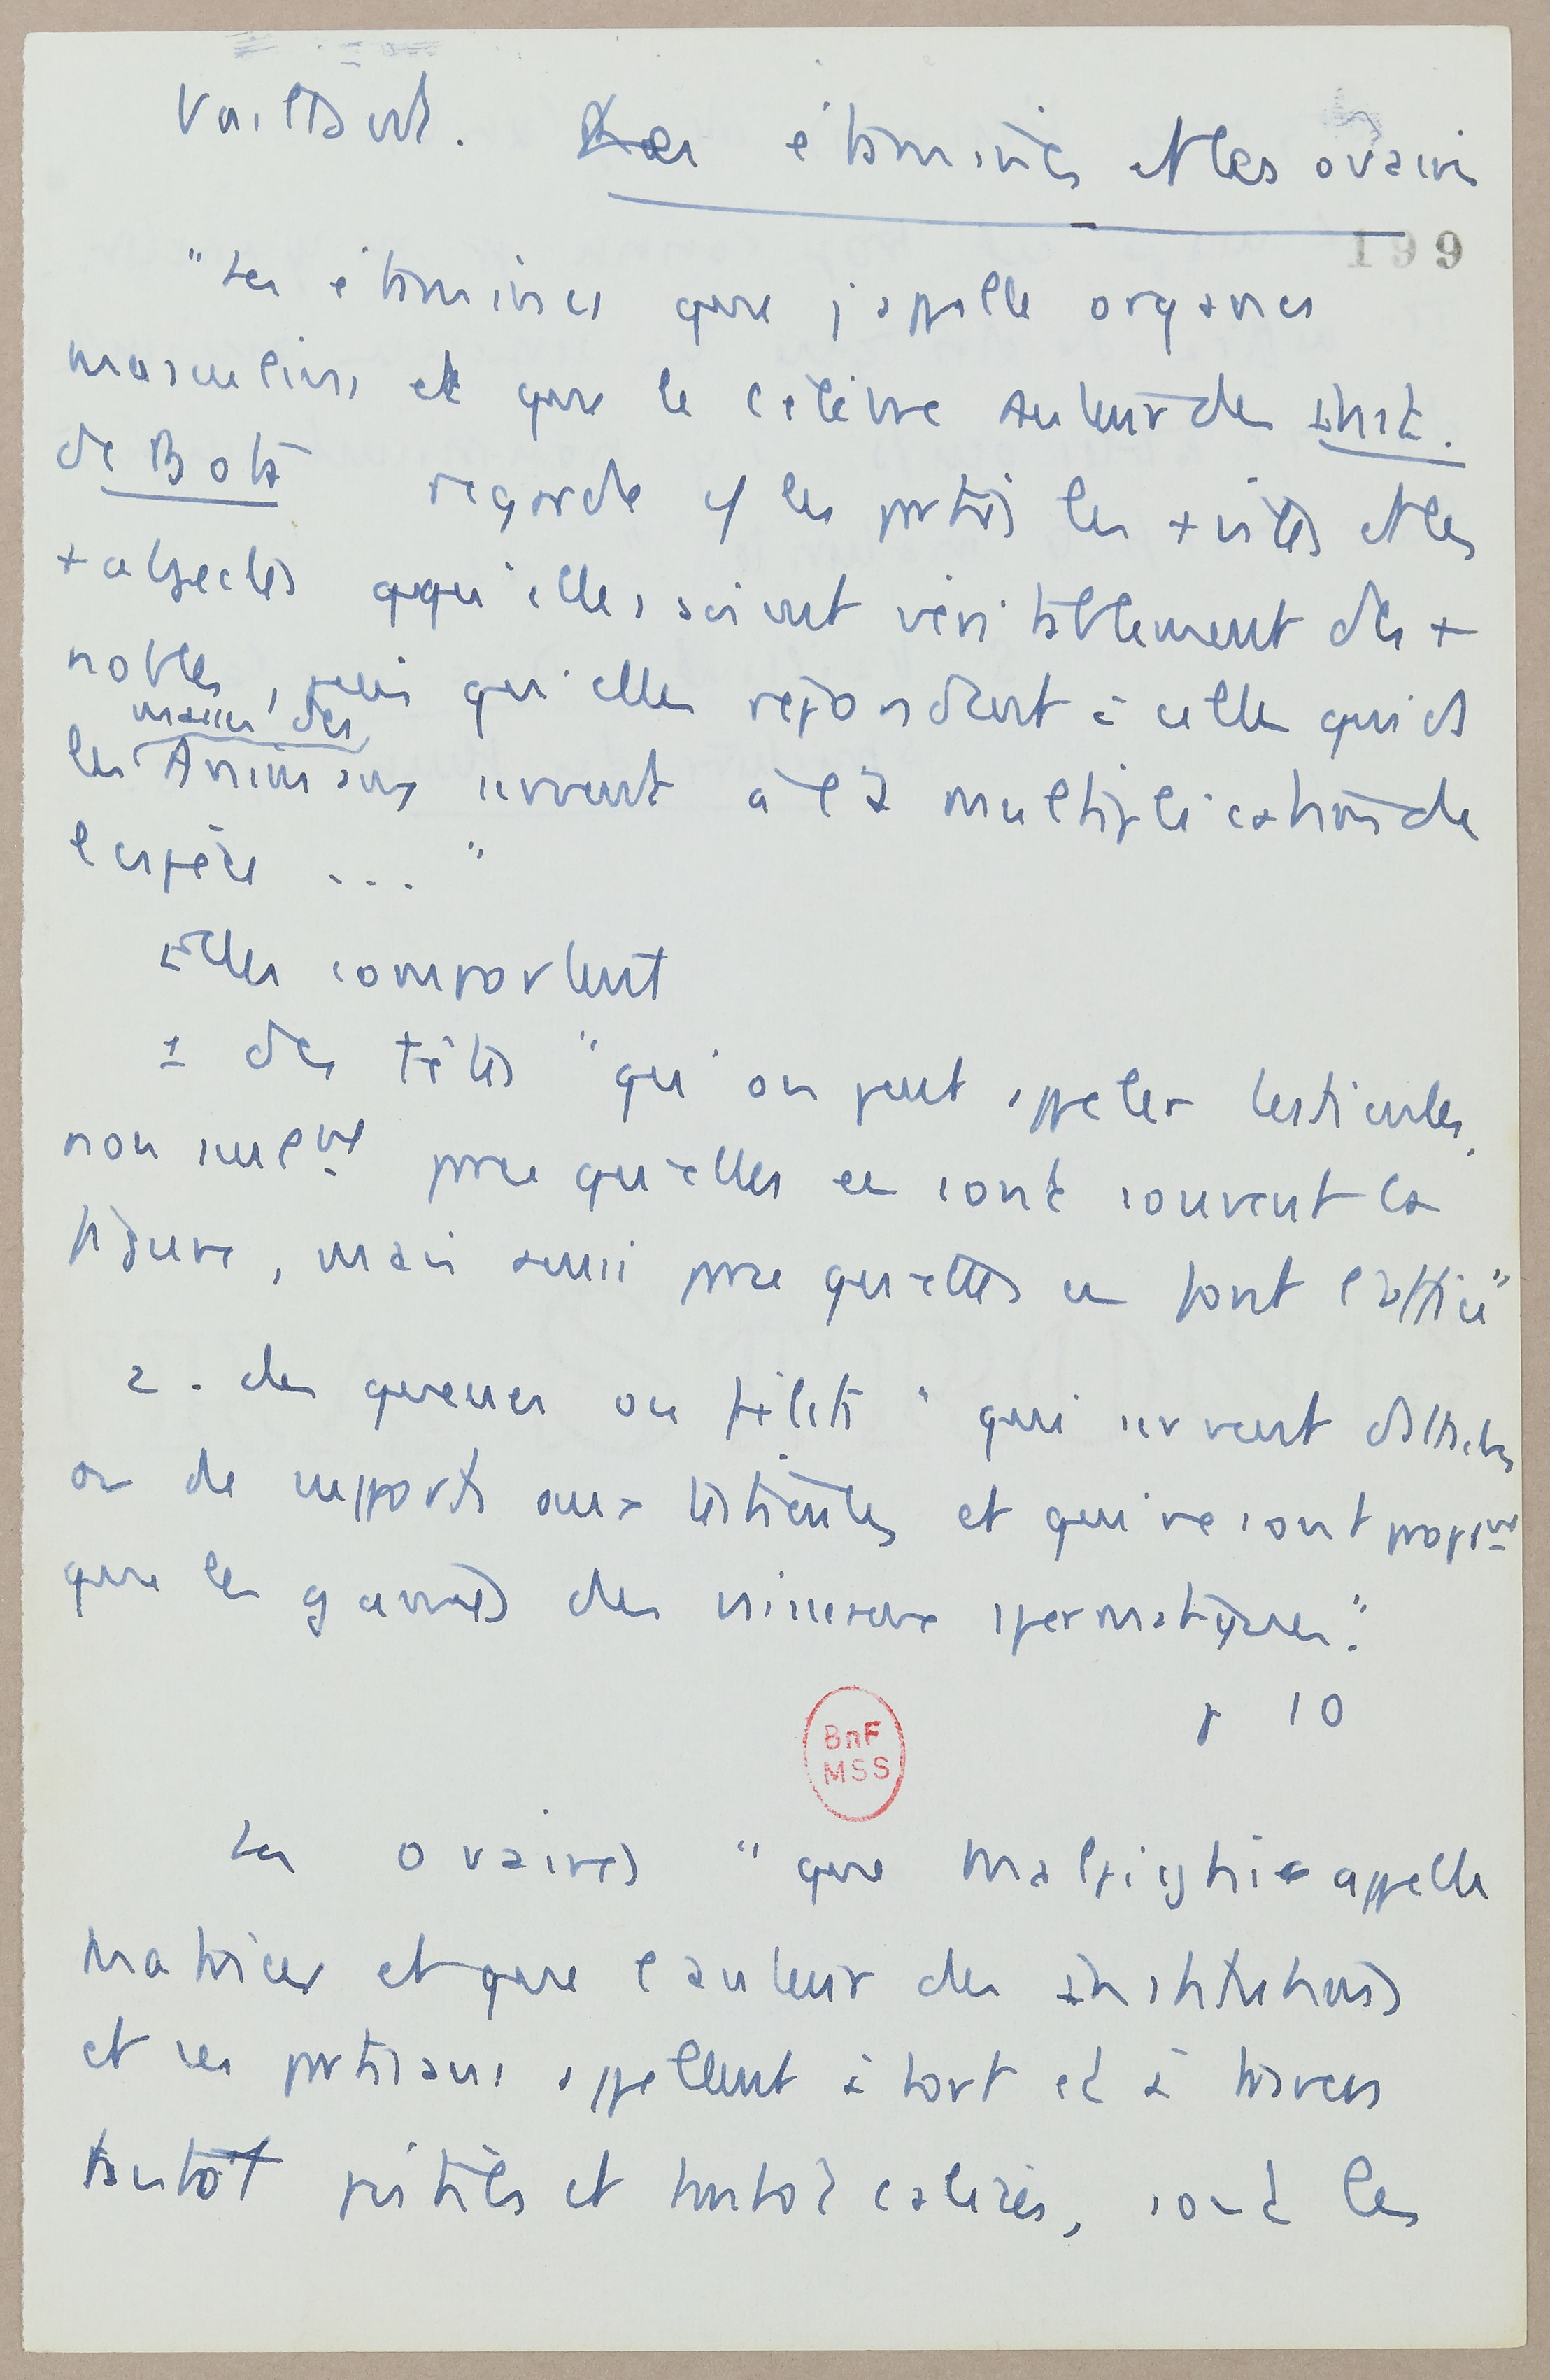 Vaillant. Les étamines et les ovaires
199
"Les étamines que j'appelle organes
masculins et que le célèbre auteur des Inst.
de Bota regarde c/ les parties les + viles et les
+ abjectes qqu'elles soient véritablement des +
nobles, puis qu'elles répondent à celles qui ds
les mâles des Animaux servent à la multiplication de
l'espèce ... "
Elles comportent
1 des têtes "qu'on peut appeler testicules,
non seulemt parce qu'elles en sont souvent la
figure, mais aussi parce qu'elles en font l'office"
2. des queues ou filets "qui servent d'attaches
ou de supports aux testicules et qui ne sont propremt
que les gaines des vaisseaux spermatiques".
p 10
BnF
MSS
Les ovaires "que Malpighi appelle
matrices et que l'auteur des Institutions
et ses partisans appellent à tort et à travers
tantôt pistiles et tantôt calices, sont les